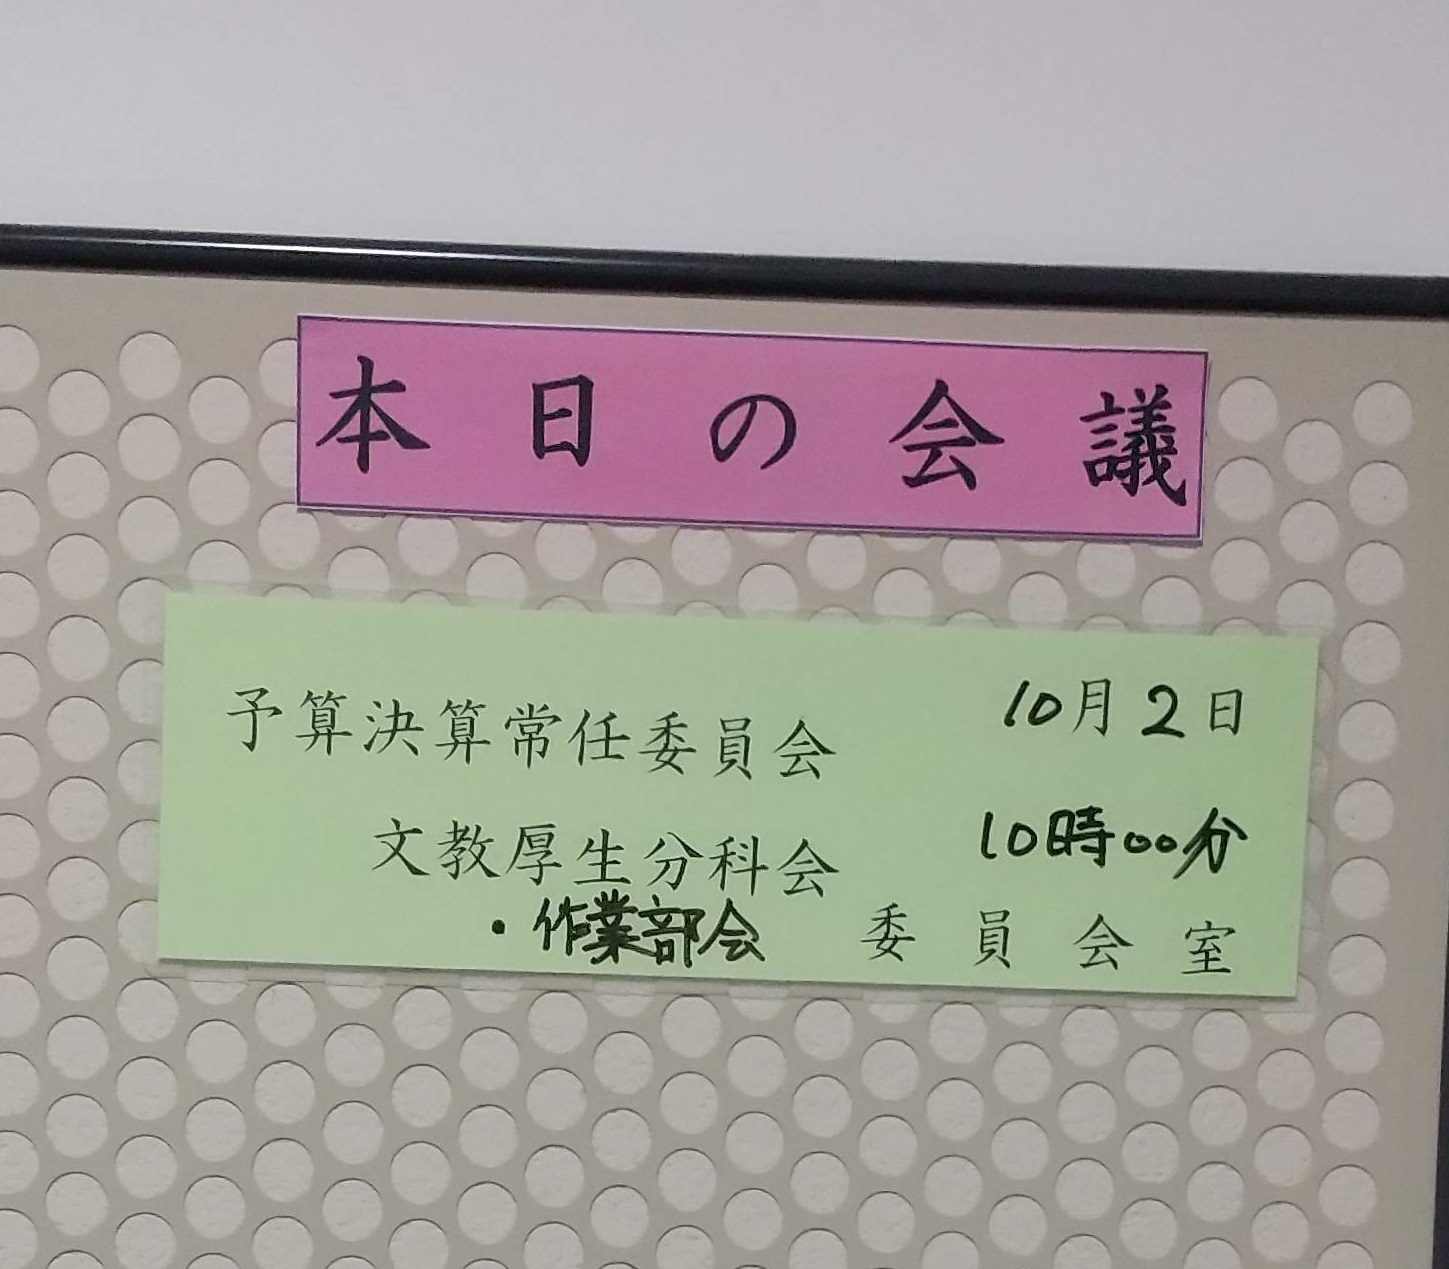 本日の会議
予算決算常任委員会
10月2日
文教厚生分科会
10時00分
・作業部会
委員会室